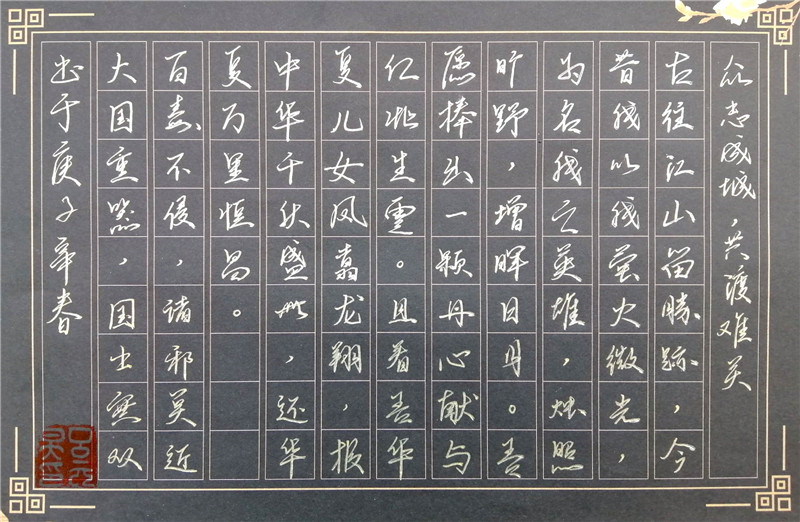 众志成城，共渡难关
古往江山留勝跡，今
昔我以我萤火微光，
为名我之英雄，烛照
旷野，增暉日月。吾
愿捧出一颗丹心献与
仁此生灵。且看吾华
夏儿女凤翥龙翔，报
中华千秋盛世，还华
夏万里恒昌。
百毒不侵，诸邪莫近
大国重器，国士無双
书于庚子年春